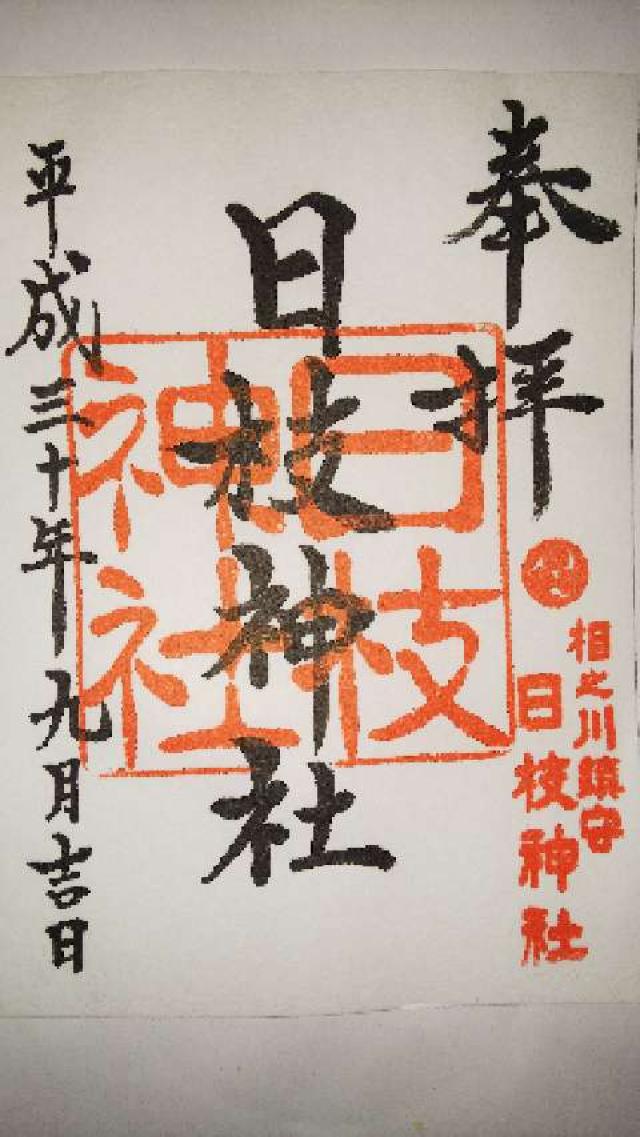 奉拝
相之川鎮守
日枝神社
日枝神社
日枝神社
平成三十年九月吉日